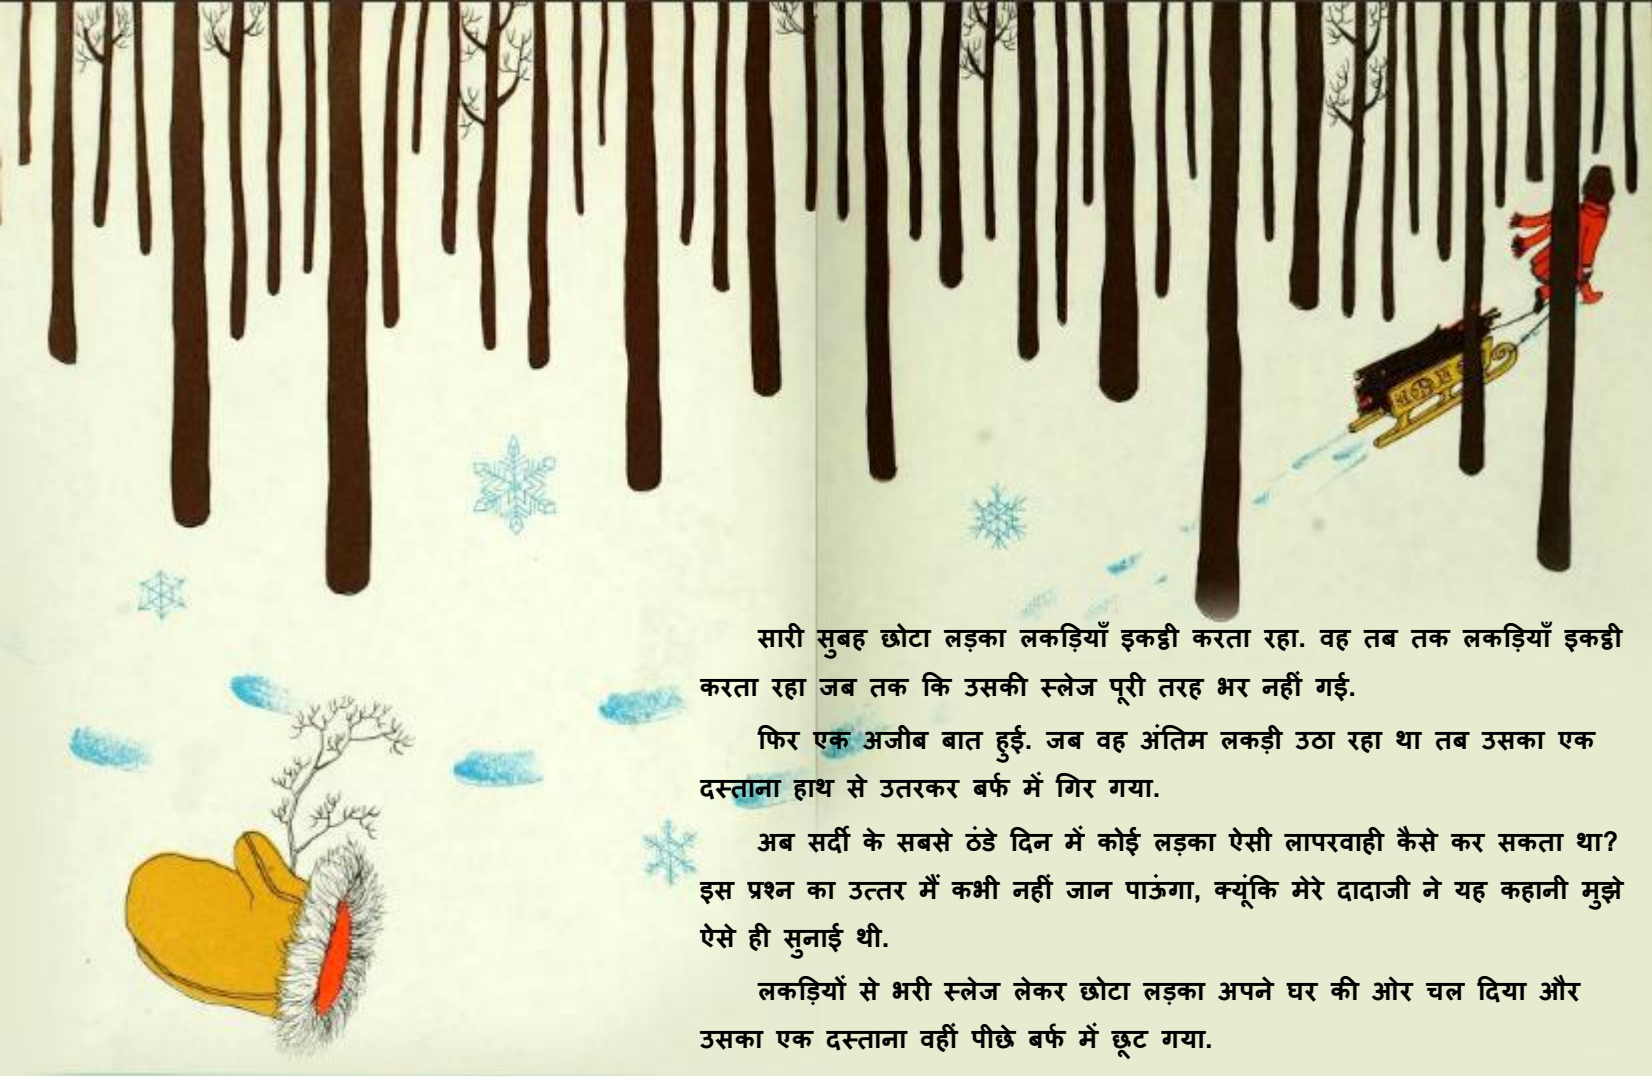 सारी सुबह छोटा लड़का लकड़ियाँ इकट्ठी करता रहा. वह तब तक लकड़ियाँ इकट्ठी
करता रहा जब तक कि उसकी स्लेज पूरी तरह भर नहीं गई.
फिर एक अजीब बात हुई. जब वह अंतिम लकड़ी उठा रहा था तब उसका एक
दस्ताना हाथ से उतरकर बर्फ में गिर गया.
अब सर्दी के सबसे ठंडे दिन में कोई लड़का ऐसी लापरवाही कैसे कर सकता था?
इस प्रश्न का उत्तर मैं कभी नहीं जान पाऊंगा, क्यूंकि मेरे दादाजी ने यह कहानी मुझे
ऐसे ही सुनाई थी.
लकड़ियों से भरी स्लेज लेकर छोटा लड़का अपने घर की ओर चल दिया और
उसका एक दस्ताना वहीं पीछे बर्फ में छूट गया.